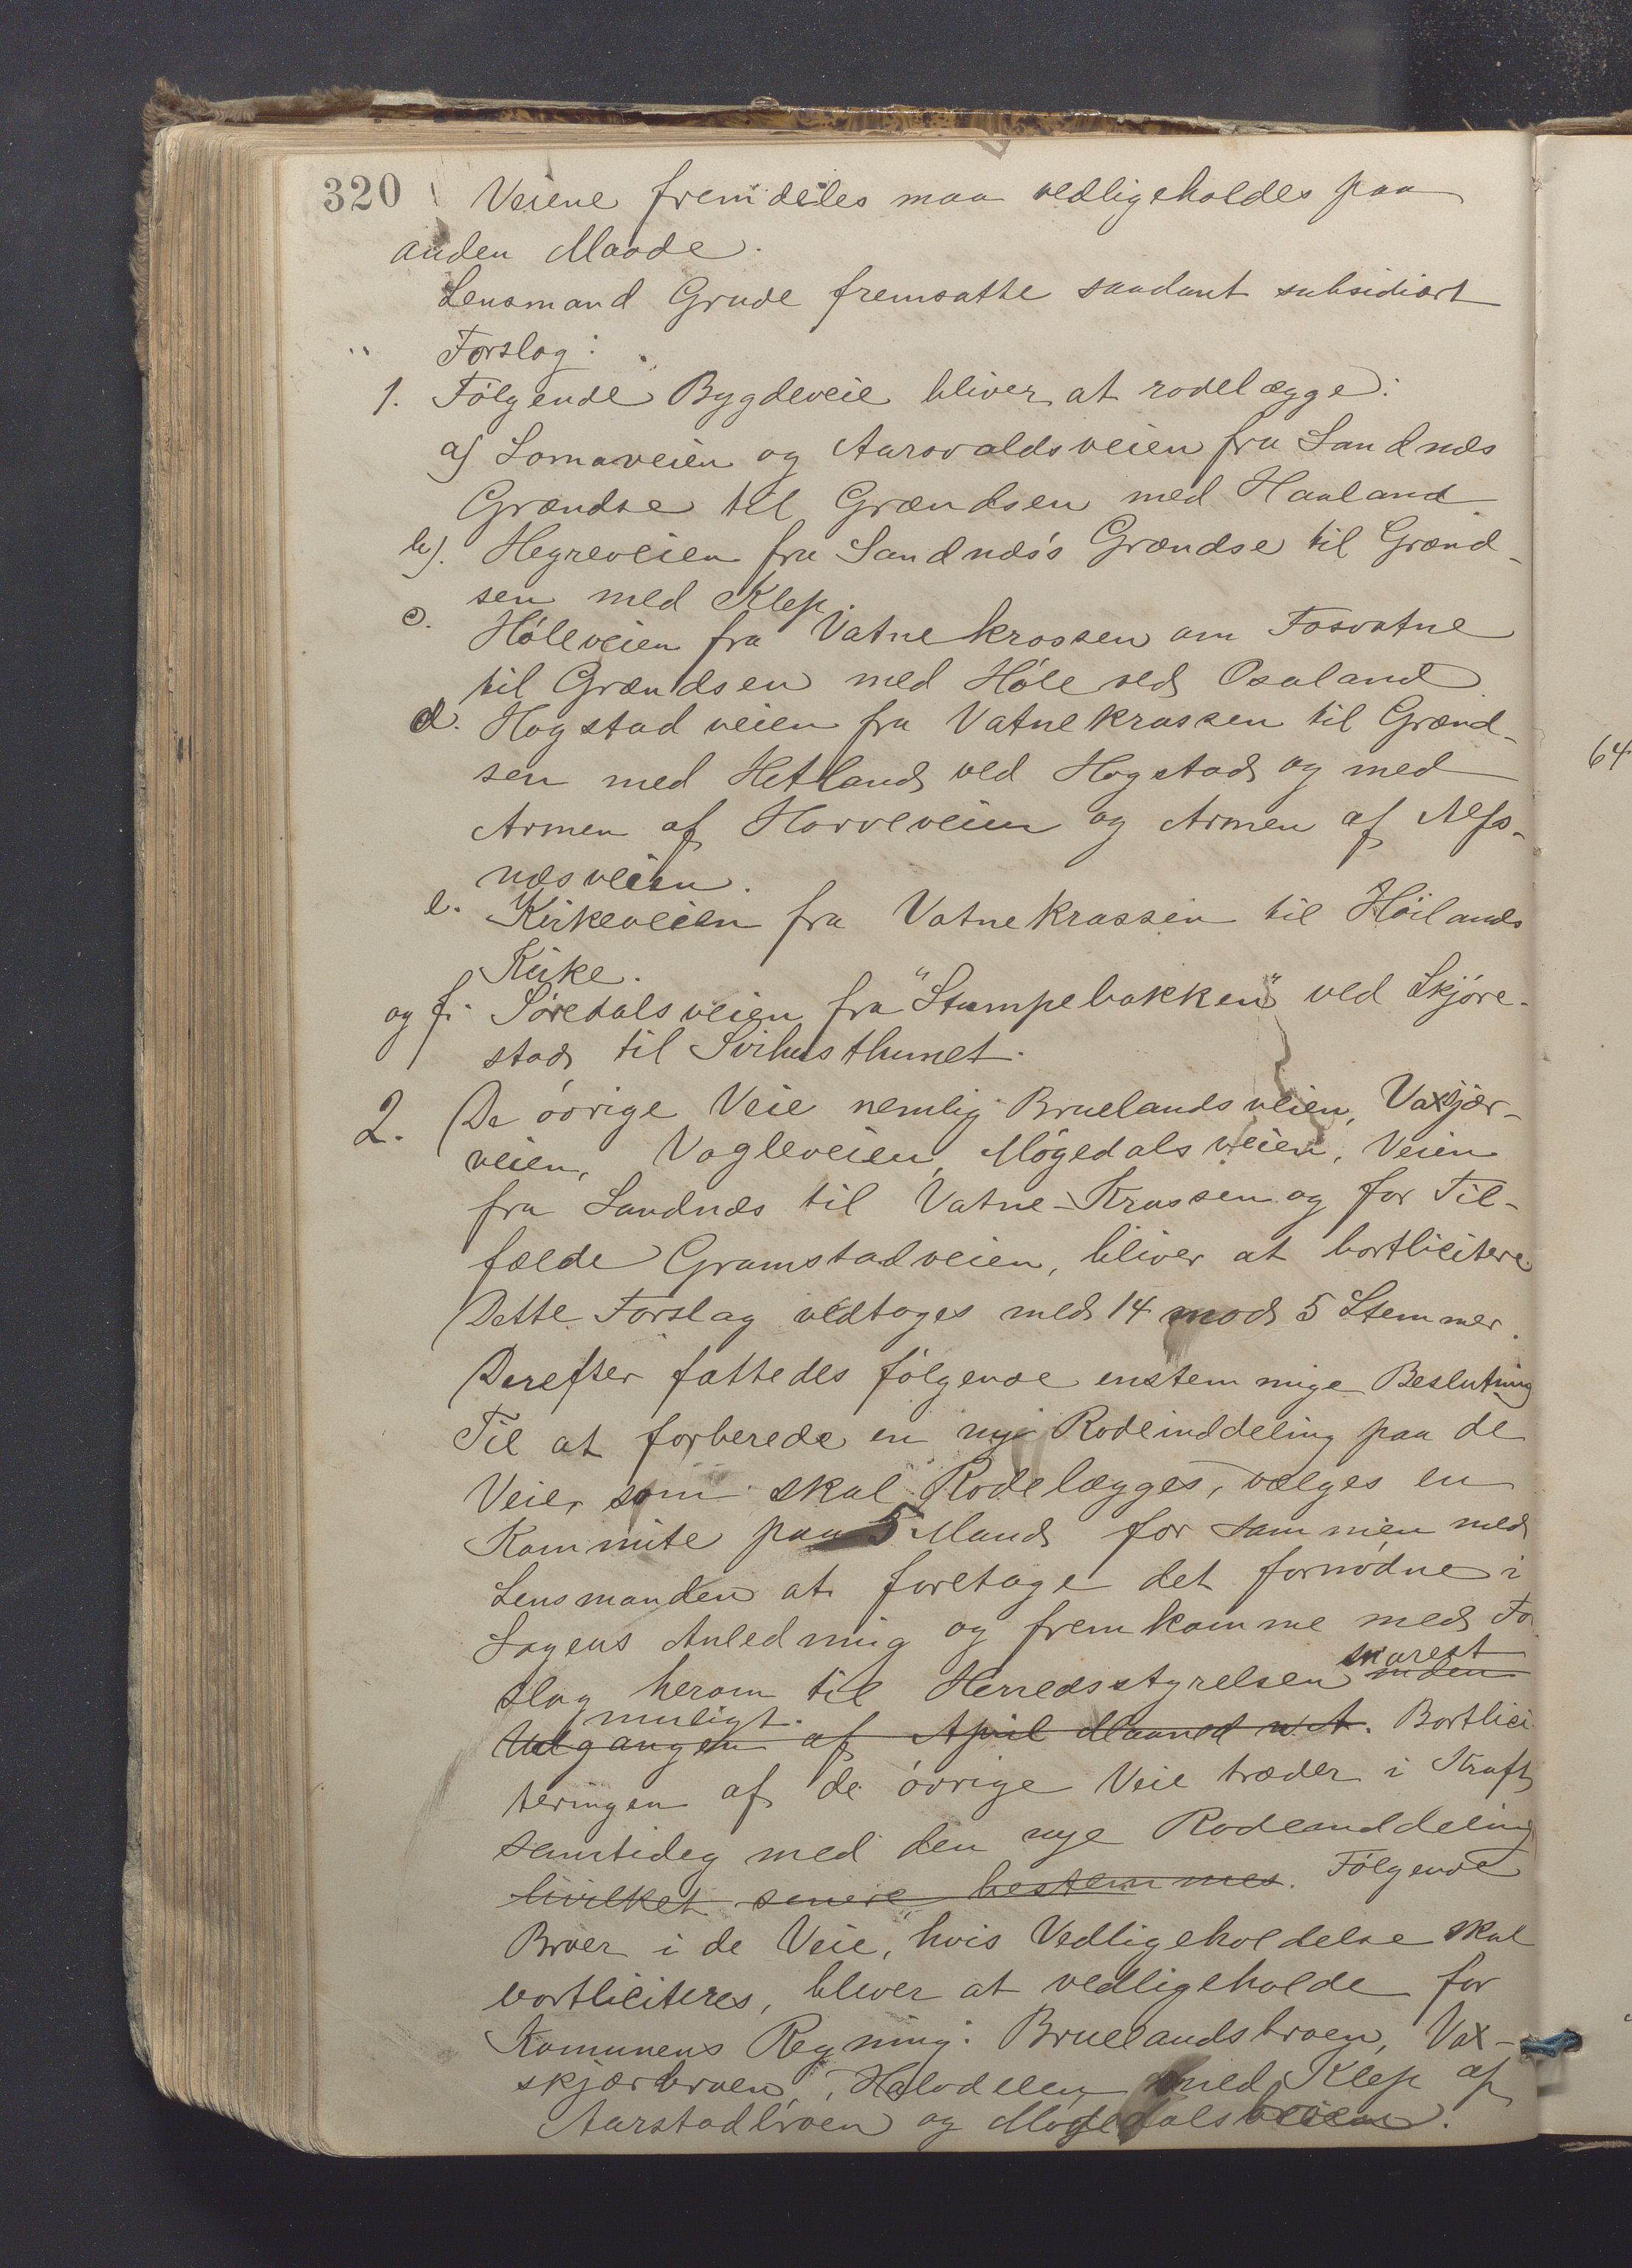 320 Veiene fremdeles maa vedligeholdes paa
anden Maade.
Lensmand Grude fremsatte saadant subsidiært
Forslag:
1. Følgende Bygdeveie bliver at rodelægge:
a) Somaveien og Aarsvoldsveien fra Sandnæs
Grændse til Grændsen med Haaland
b). Hegreveien fra Sandnæs's Grændse til Grænd-
sen med Klep.
c. Høleveien fra Vatnekrossen om Fosvatne
til Grændsen med Høle ved Osaland
d. Hogstadveien fra Vatnekrossen til Grænd-
sen med Hetland ved Hogstad og med
Armen af Hoveveien og Armen af Alfs-
næsveien.
e. Kirkeveien fra Vatnekrossen til Høilands
Kirke.
og f. Søredalsveien fra "Stumpebakken" ved Skjøre-
stad til Svihusthunet.
2. De øvrige Veie nemlig Bruelandsveien, Vaxkjær-
veien, Vagleveien, Møgedalsveien, Veien
fra Sandnæs til Vatne-Krossen og for Til-
fælde Gramstadveien, bliver at bortlicitere
Dette Forslag vedtoges med 14 mod 5 Stemmer.
Derefter fattedes følgende enstemmige Beslutning
Til at forberede en ny Rodeinddeling paa de
Veie, som skal Rodelægges, vælges en
Kommite paa 5 Mand for sammen med
Lensmanden at foretage det fornødne i
Sagens Anledning og fremkomme med For
slag herom til Herredsstyrelsen inden snarest
muligt.
Udgangen af April Maaned n. A. Bortlici
teringen af de øvrige Veie træder i Kraft
samtidig med den nye Rodeinddeling
hvilket senere bestemmes. Følgende
Broer i de Veie, hvis Vedligeholdelse skal
bortliciteres, bliver at vedligeholde for
Komunens Regning: Bruelandsbroen, Vax-
skjærbroen, Halvdelen med Klep af
Aarstadbroen og Møgedalsbroen.
64